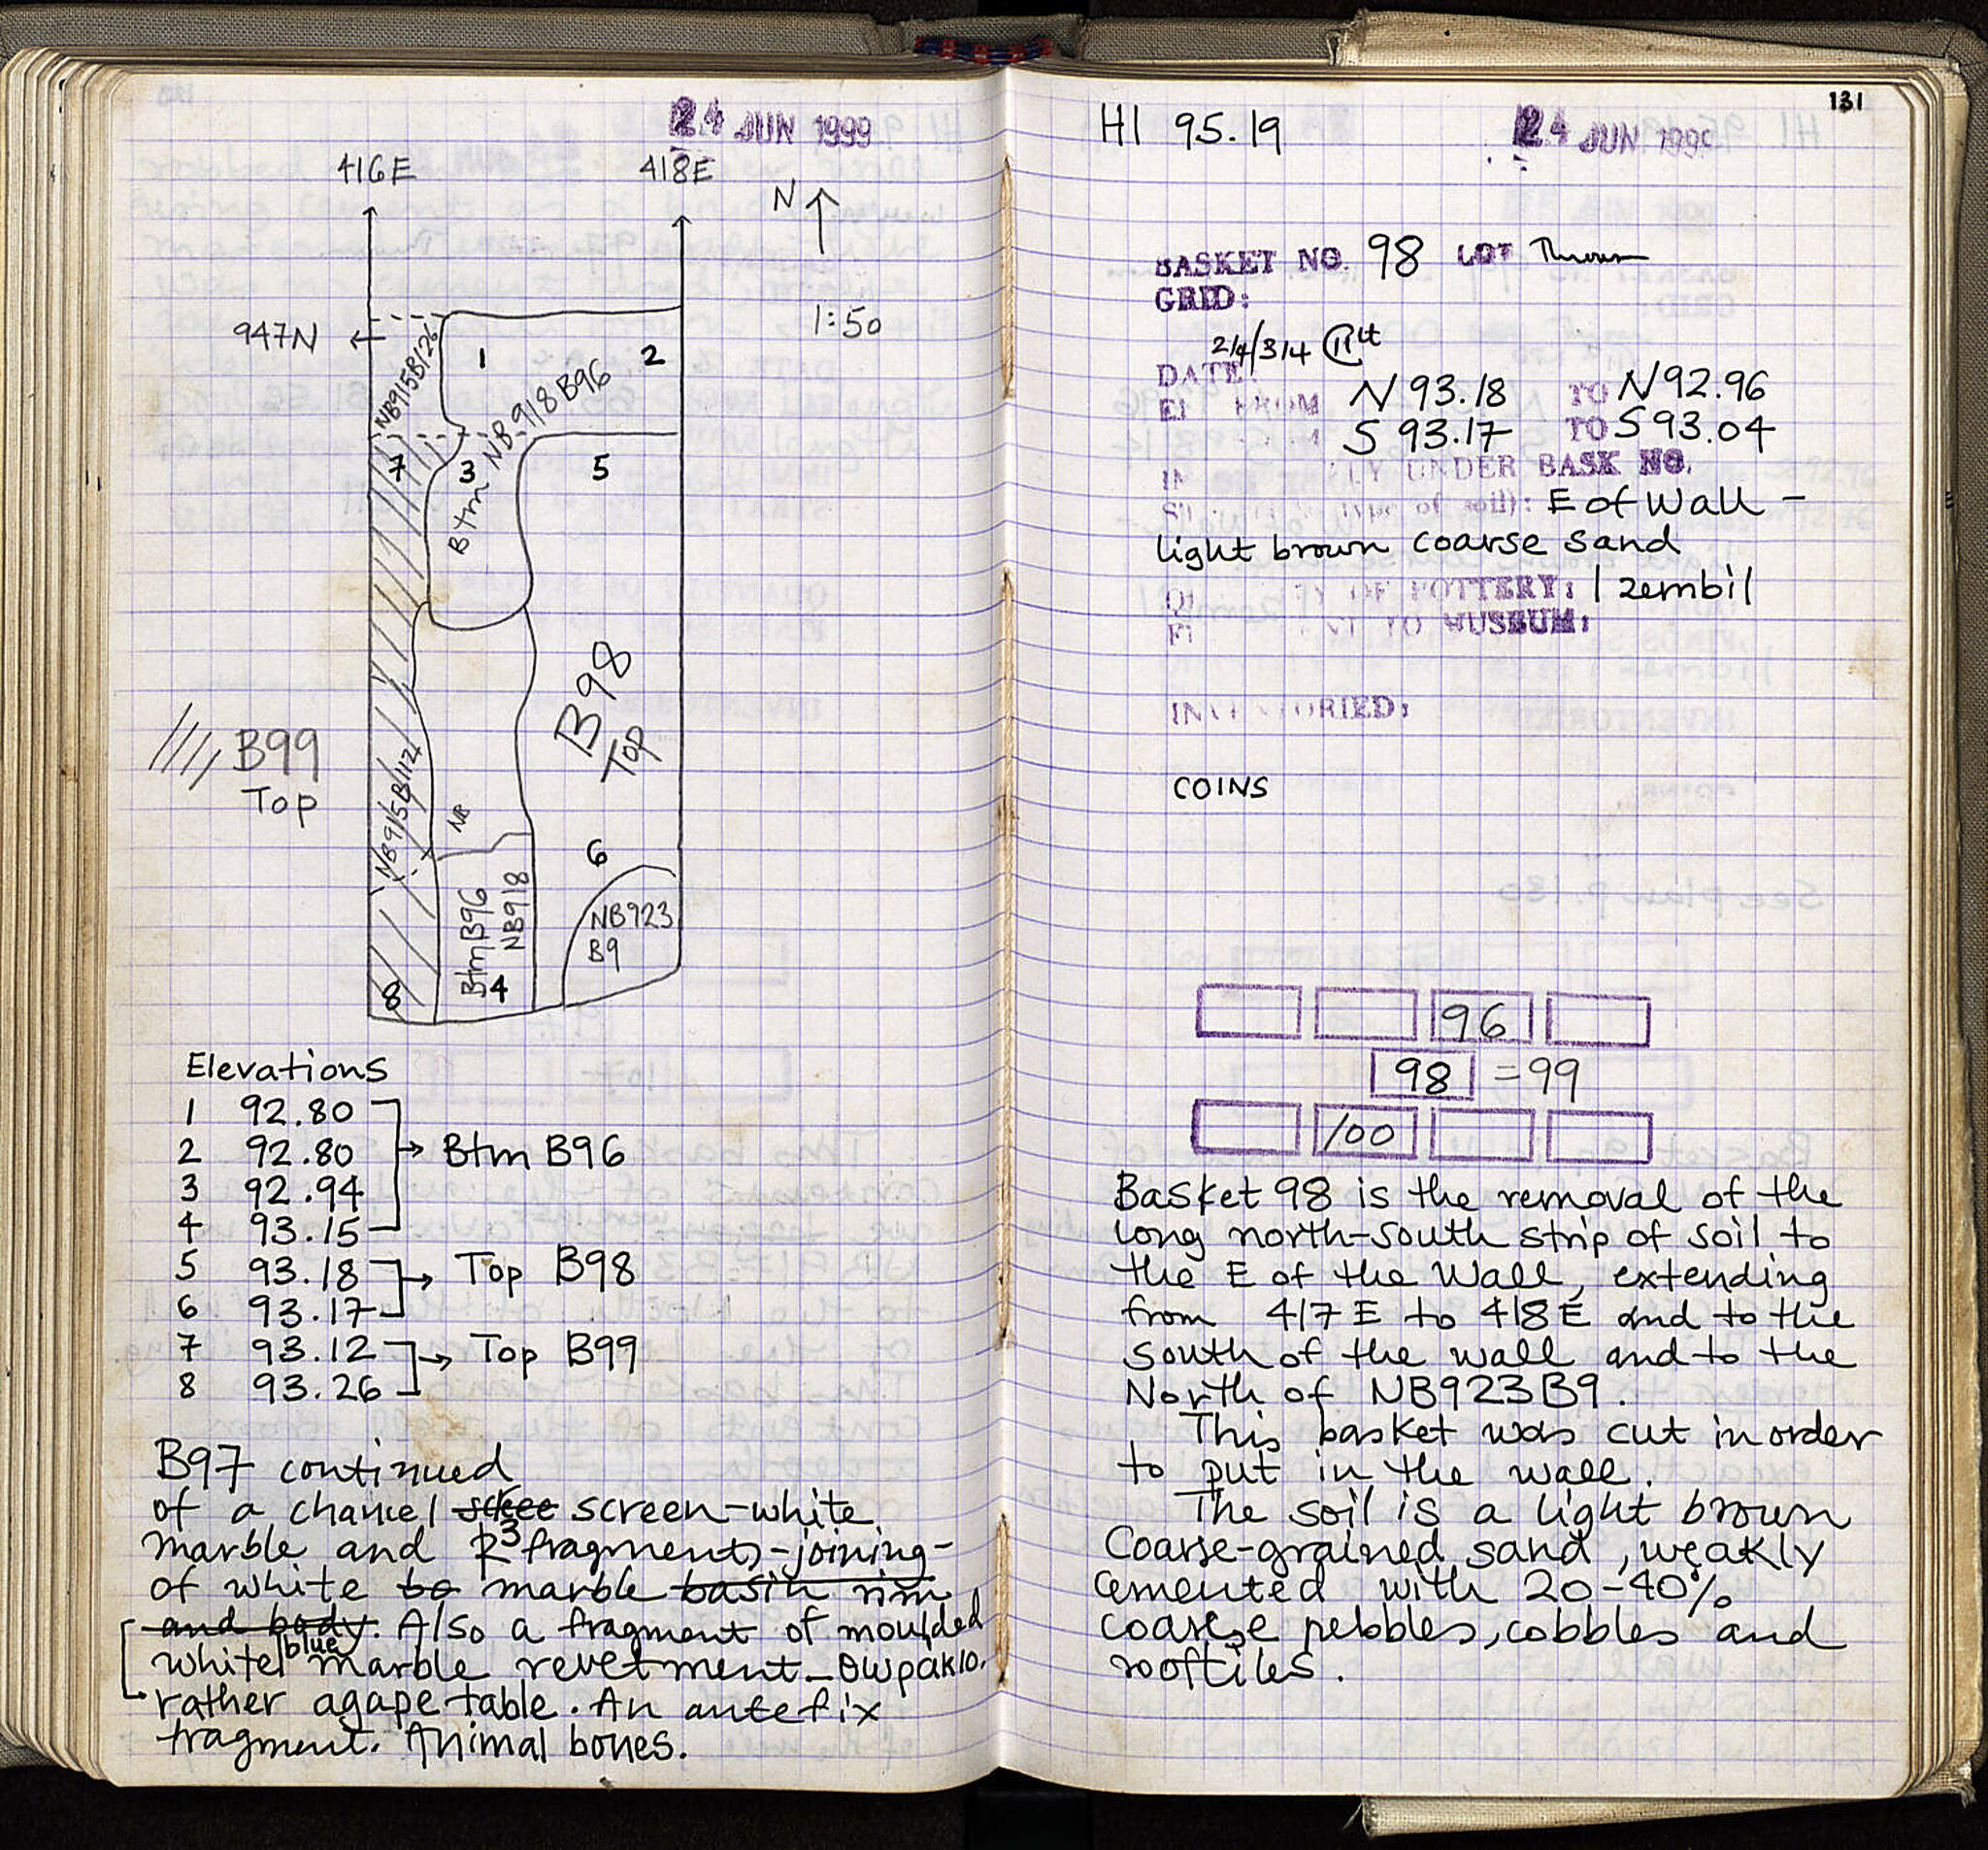 24 JUN 1999
416E 418E
N
947N
1:50
NB915B126
1 2
NB918B96
7 3 5
Btm
B98
Top
B99
Top
NB915B112
NB
6
BtmB96
NB918
NB923
B9
8 4
Elevations
1 92.80
2 92.80 → Btm B96
3 92.94
4 93.15
5 93.18 → Top B98
6 93.17
7 93.12 → Top B99
8 93.26
B97 continued
of a chancel scree screen-white
marble and 2 3 fragments-joining-
of white ba marble basin rim
and body. Also a fragment of moulded
white/blue marble revetment-Θωρακιο.
rather agape table. An antefix
fragment. Animal bones.
131
HI 95.19 24 JUN 1999
BASKET NO. 98 LOT Thrown
GRID:
DATE:
N 93.18 TO N 92.96
S 93.17 TO S 93.04
UNDER BASK NO.
type of soil): E of Wall -
light brown coarse sand
OF POTTERY: 1 zembil
TO MUSEUM:
INVENTORIED:
COINS
96
98 =99
100
Basket 98 is the removal of the
long north-south strip of soil to
the E of the Wall, extending
from 417E to 418E and to the
south of the wall and to the
North of NB923B9.
This basket was cut in order
to put in the wall.
The soil is a light brown
Coarse-grained sand, weakly
cemented with 20-40%
coarse pebbles, cobbles and
rooftiles.